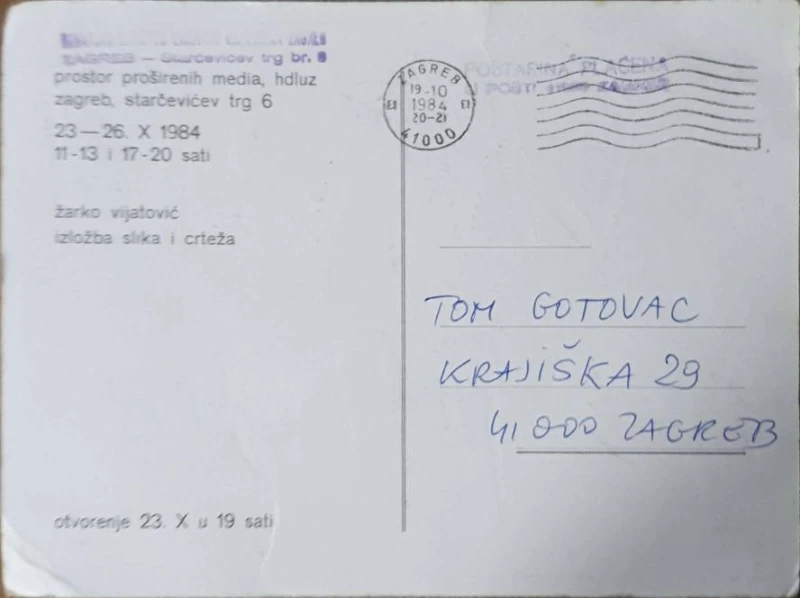 ZAGREB — Starčevićev trg br. 6
prostor proširenih media, hdluz
zagreb, starčevićev trg 6
23 — 26. X 1984
11-13 i 17-20 sati
žarko vijatović
izložba slika i crteža
otvorenje 23. X u 19 sati
ZAGREB
19-10
1984
20-21
41000
POŠTARINA PLAĆENA
TOM GOTOVAC
KRAJIŠKA 29
41000 ZAGREB